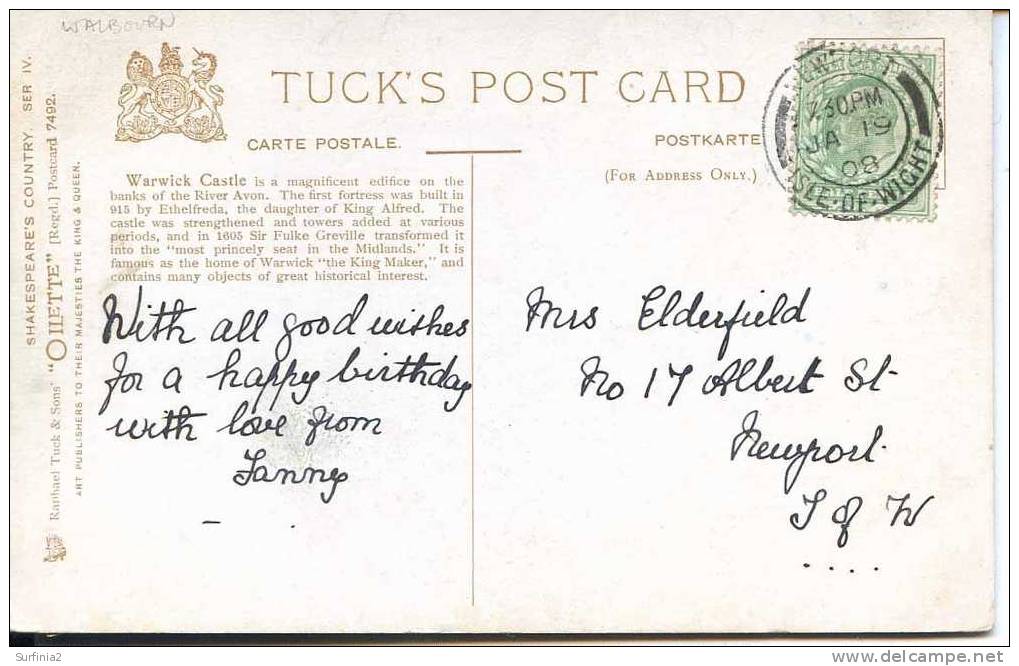 WALBOURN
TUCK'S POST CARD
CARTE POSTALE.
POSTKARTE
(FOR ADDRESS ONLY.)
NEWPORT
7.30PM
JA 19
08
ISLE·OF·WIGHT
Warwick Castle is a magnificent edifice on the
banks of the River Avon. The first fortress was built in
915 by Ethelfreda, the daughter of King Alfred. The
castle was strengthened and towers added at various
periods, and in 1605 Sir Fulke Greville transformed it
into the "most princely seat in the Midlands." It is
famous as the home of Warwick "the King Maker," and
contains many objects of great historical interest.
With all good wishes
for a happy birthday
with love from
Fanny
Mrs Elderfield
No 17 Albert St
Newport
I of W
....
SHAKESPEARE'S COUNTRY. SER IV.
Raphael Tuck & Sons' "OILETTE" [Regd.] Postcard 7492.
ART PUBLISHERS TO THEIR MAJESTIES THE KING & QUEEN.
Surfinia2
www.delcampe.net